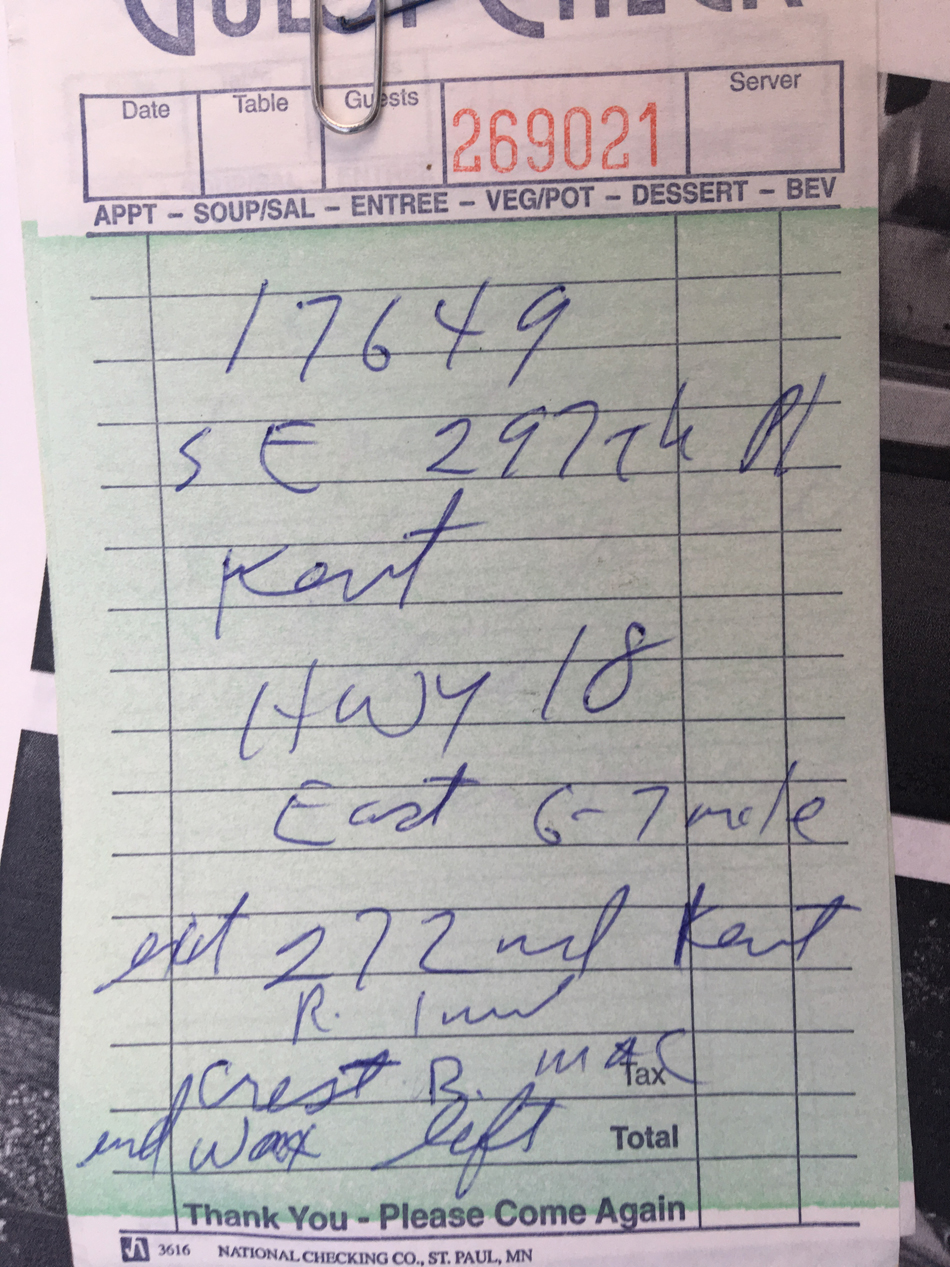 GUEST CHECK
Date Table Guests 269021 Server
APPT – SOUP/SAL – ENTREE – VEG/POT – DESSERT – BEV
17649
SE 297th Pl
Kent
HWY 18
East 6-7 mile
exit 272nd Kent
R.
Crest B.
Tax
left
Total
Thank You - Please Come Again
3616 NATIONAL CHECKING CO., ST. PAUL, MN